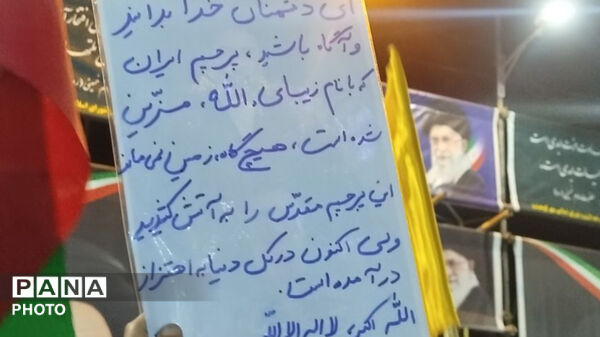 ای دشمنان خدا بدانید
و آگاه باشید، پرچم ایران
که با نام زیبای، الله، مزّین
شده است، هیچ گاه زمین نمی ماند
این پرچم مقدّس را به آتش کشیدید
ولی اکنون در کل دنیا به اهتزاز
در آمده است.
الله اکبر، لا اله الا الله
PANA
PHOTO